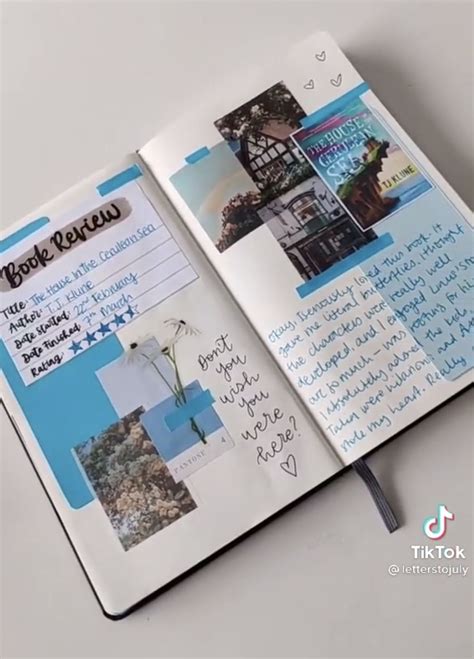 Book Review
Title: The House In the Cerulean Sea
Author: T.J. Klune
Date started: 22nd February
Date finished: 7th March
Rating:
Don't
you
wish
you
were
here?
PANTONE
THE HOUSE
CERULEAN
SEA
TJ KLUNE
Okay I seriously loved this book. It
gave me literal butterflies, I thought
the characters were really well
developed, and I enjoyed Linus'
arc so much - was rooting for
I absolutely adored
Talia were hilarious and
stole my heart. Really
TikTok
@letterstojuly